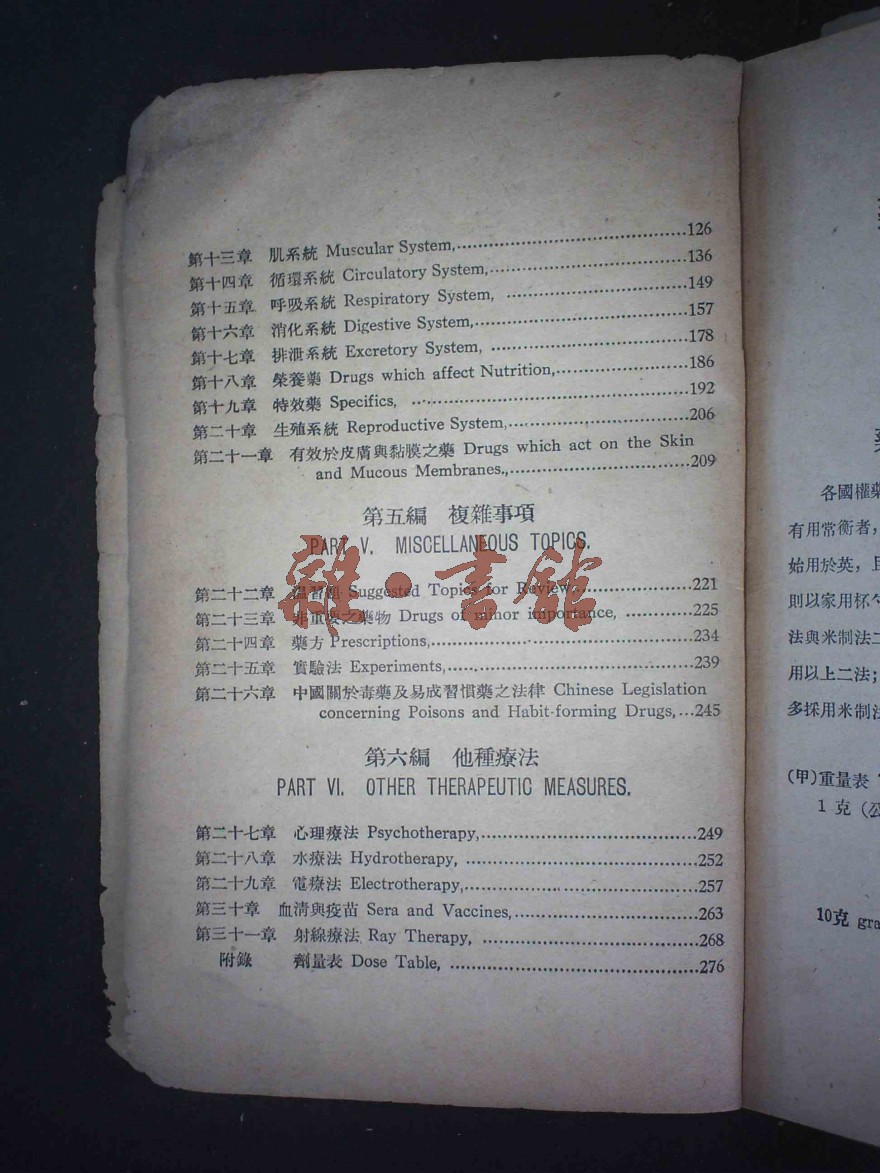 第十三章 肌系統 Muscular System,................126
第十四章 循環系統 Circulatory System,................136
第十五章 呼吸系統 Respiratory System, ................149
第十六章 消化系統 Digestive System,................157
第十七章 排泄系統 Excretory System, ................178
第十八章 榮養藥 Drugs which affect Nutrition,................186
第十九章 特效藥 Specifics, ................192
第二十章 生殖系統 Reproductive System,................206
第二十一章 有效於皮膚與黏膜之藥 Drugs which act on the Skin
and Mucous Membranes.,................209
第五編 複雜事項
PART V. MISCELLANEOUS TOPICS.
第二十二章 溫習題 Suggested Topics for Review,................221
第二十三章 非重要之藥物 Drugs of minor importance, ................225
第二十四章 藥方 Prescriptions,................234
第二十五章 實驗法 Experiments,................239
第二十六章 中國關於毒藥及易成習慣藥之法律 Chinese Legislation
concerning Poisons and Habit-forming Drugs,...245
第六編 他種療法
PART VI. OTHER THERAPEUTIC MEASURES.
第二十七章 心理療法 Psychotherapy,................249
第二十八章 水療法 Hydrotherapy, ................252
第二十九章 電療法 Electrotherapy,................257
第三十章 血清與疫苗 Sera and Vaccines,................263
第三十一章 射線療法 Ray Therapy, ................268
附錄 劑量表 Dose Table, ................276
雜·書館
各國權藥
有用常衡者,
始用於英,且
則以家用杯勺
法與米制法二
用以上二法;
多採用米制法
(甲)重量表
1 克 (公
10克 gra